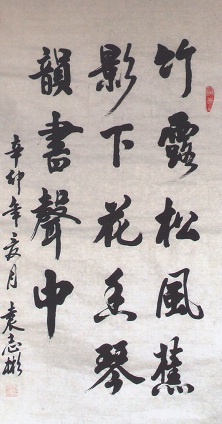 竹露松風蕉
影下花香琴
韻書聲中
辛卯年夏月 袁志彬